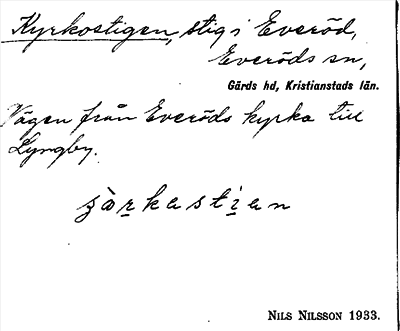 Kyrkostigen, stig i Everöd,
Everöds sn,
Gärds hd, Kristianstads län.
Vägen från Everöds kyrka till
Lyngby.
NILS NILSSON 1933.